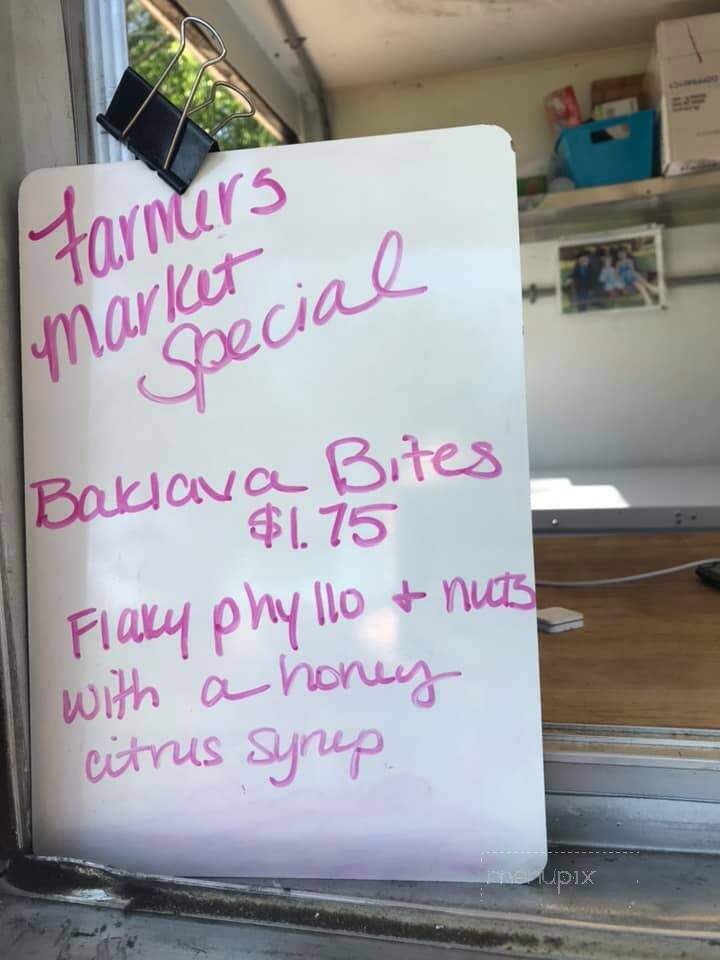 Farmers
market
Special
Baklava Bites
$1.75
Flaky phyllo + nuts
with a honey
citrus syrup
menupix